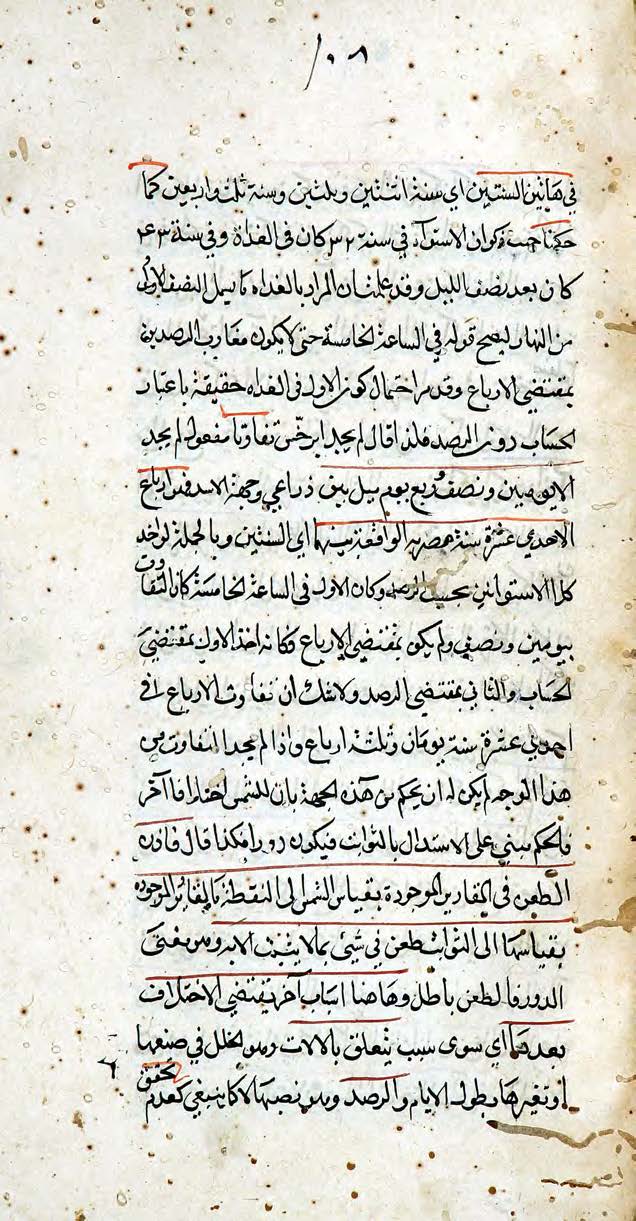 ١٠٨
في هاتين السنتين اي سنة اثنتين وثلثين وسنة ثلث واربعين كما
حكينا حيث ذكر ان الاستواء في سنة ٣٢ كان في الغداة وفي سنة ٤٣
كان بعد نصف الليل وقد علمت ان المراد بالغداه ما يشمل النصف الاول
من النهار ليصح قوله في الساعة الخامسة حتى لا يكون مغاير المرصدين
بمقتضي الارباع وقد مر احتمال كون الاول في الغداه حقيقة باعتبار
الحساب دون المرصد فلذا قال لم يجد ابرخس تفاوتا مفعول لم يجد
الا يومين ونصف وربع يوم اي ارباع
الاحدي عشرة سنة الواقعة بينهما اي السنتين وبالجملة لو اخذ
كلا الاستوائين بحسب الرصد وكان الاول في الساعة الخامسة كان التفاوت
بيومين ونصف ولم يكن بمقتضي الارباع فكانه اخذ الاول بمقتضي
الحساب والثاني بمقتضي الرصد ولا شك ان تفاوت الارباع في
احدي عشرة سنة يومان وثلثة ارباع واذا لم يجد التفاوت من
هذا الوجه لم يكن له ان يحكم من هذه الجهة بان للشمس اختلافا آخر
فالحكم مبني على الاستدلال بالثوابت فيكون دورا هكذا قال فاذن
الطعن في المقادير الموجودة بقياس الشمس الى النقطة بالمقادير الموجوده
بقياسها الى الثوابت طعن في شئ بما لا يثبت الا به وهو معنى
الدور فالطعن باطل وهاهنا اسباب آخر تقتضي الاختلاف
بعدها اي سوى سبب يتعلق بالالات وهو الخلل في صنعها
او تغيرها بطول الايام والرصد وهو نصبها لا كما ينبغي كعدم
تحقق